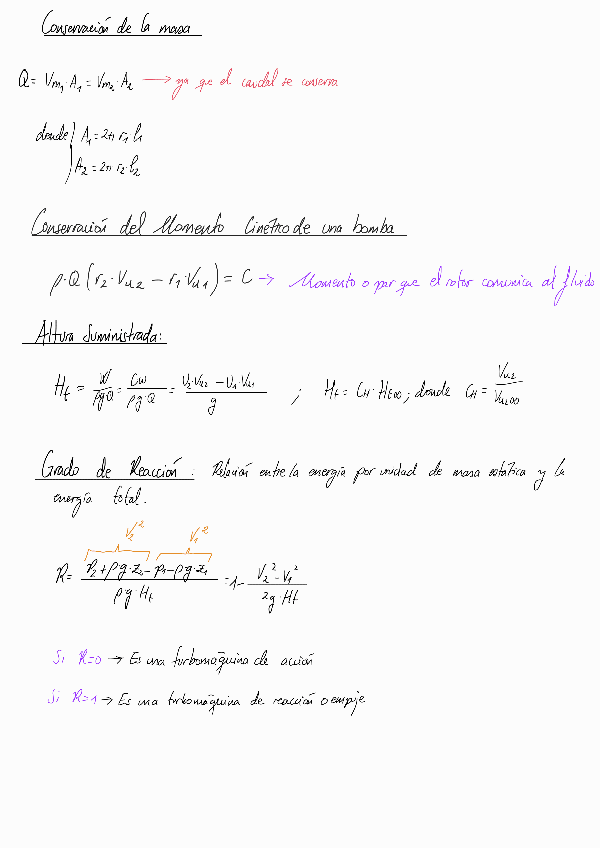 Conservación de la masa
Q = Vm₁·A₁ = Vm₂·A₂ → ya que el caudal se conserva
donde A₁ = 2π r₁ b₁
A₂ = 2π r₂·b₂
Conservación del Momento Cinético de una bomba
ρ·Q (r₂·Vu₂ − r₁·Vu₁) = C → Momento o par que el rotor comunica al fluido
Altura Suministrada:
Ht = W/ρgQ = Cω/ρg·Q = (U₂·Vu₂ − U₁·Vu₁)/g ; Ht = CH·Ht∞ ; donde CH = Vu₂/Vu₂∞
Grado de Reacción: Relación entre la energía por unidad de masa estática y la
energía total.
V₂² V₁²
R = (P₂+ρg·z₂ − P₁−ρg·z₁)/(ρg·Ht) = 1 − (V₂² − V₁²)/(2g·Ht)
Si R=0 → Es una turbomáquina de acción
Si R=1 → Es una turbomáquina de reacción o empuje